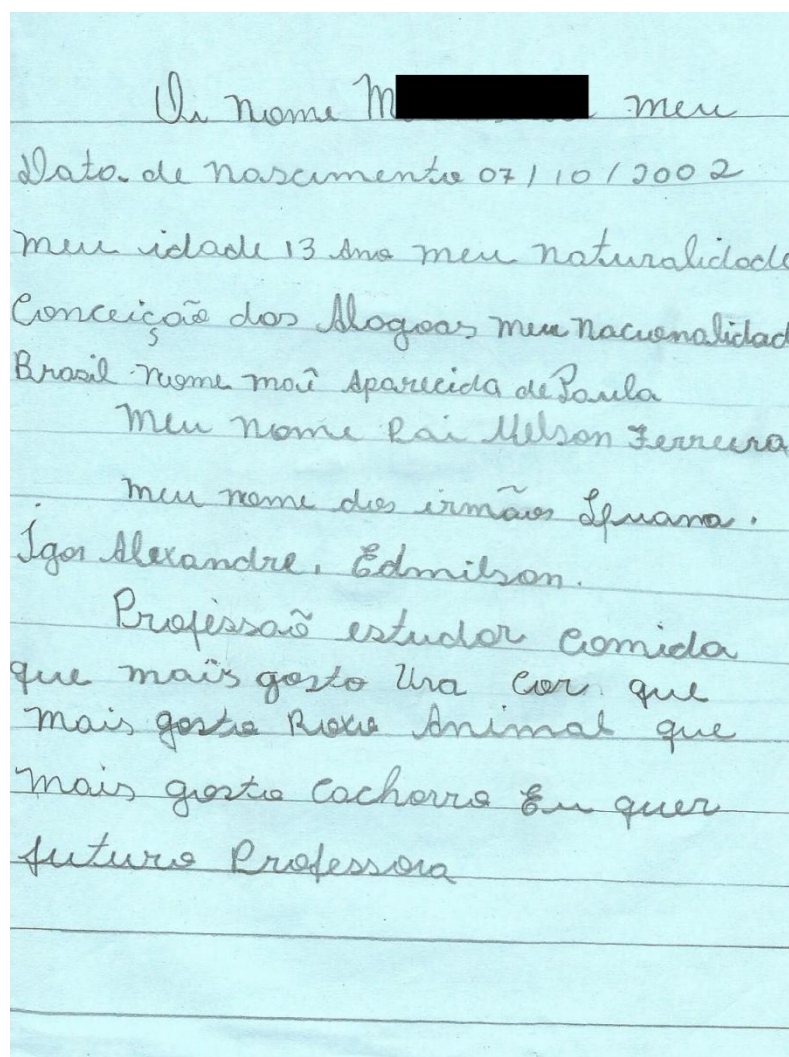 Oi nome M meu
Data de nascimento 07/10/2002
meu idade 13 Ano meu naturalidade
Conceição das Alagoas meu nacionalidad
Brasil nome maẽ Aparecida de Paula
Meu nome Pai Nelson Ferreira
meu nome dos irmãos
Ígor Alexandre, Edmilson.
Professaõ estudar comida
que mais gosto Uva cor que
mais gosto Roxo Animal que
mais gosto cachorro Eu quer
futuro Professora